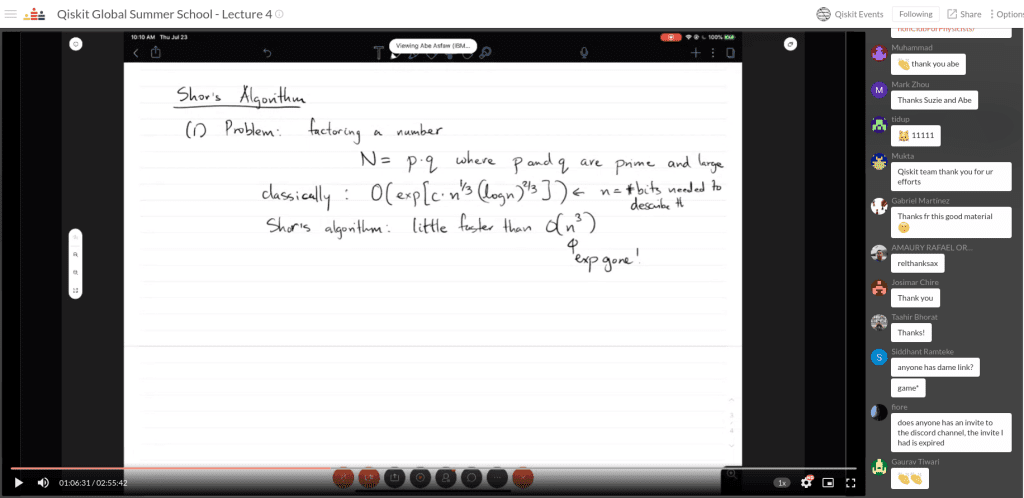 Qiskit Global Summer School - Lecture 4
Qiskit Events
Following
Share
Options
10:10 AM Thu Jul 23
Viewing Abe Asfaw (IBM...
100%
Shor's Algorithm
(1) Problem: factoring a number
N = p·q where p and q are prime and large
classically: O(exp[c·n^1/3 (logn)^2/3]) ← n = # bits needed to
describe th
Shor's algorithm: little faster than O(n^3)
exp gone!
01:06:31 / 02:55:42
1x
Muhammad
👏 thank you abe
M
Mark Zhou
Thanks Suzie and Abe
tidup
11111
Mukta
Qiskit team thank you for ur
efforts
Gabriel Martinez
Thanks fr this good material
AMAURY RAFAEL OR...
relthanksax
Josimar Chire
Thank you
Taahir Bhorat
Thanks!
S
Siddhant Ramteke
anyone has dame link?
game*
fiore
does anyone has an invite to
the discord channel, the invite I
had is expired
Gaurav Tiwari
👏👏